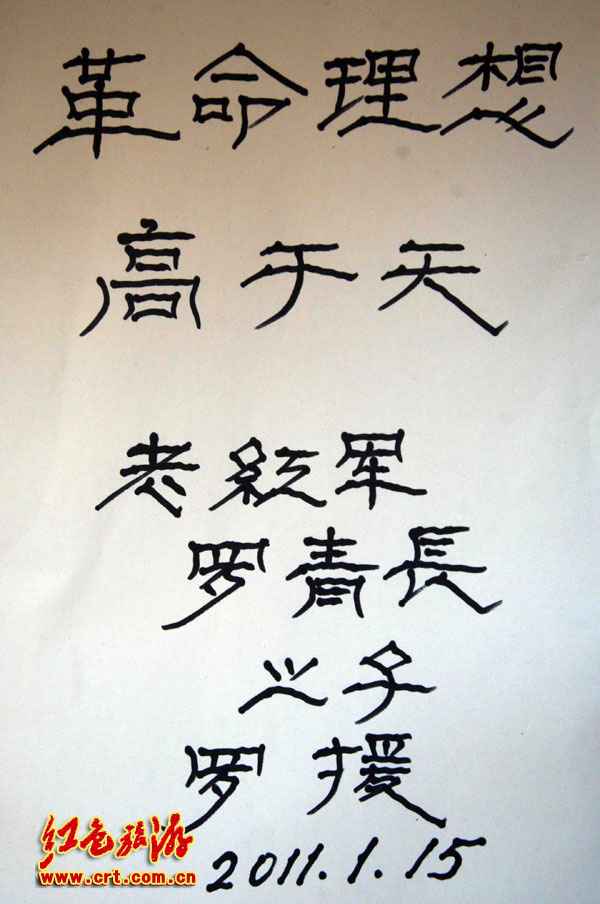 革命理想
高于天
老红军
罗青長
之子
罗援
2011.1.15
红色旅游
www.crt.com.cn